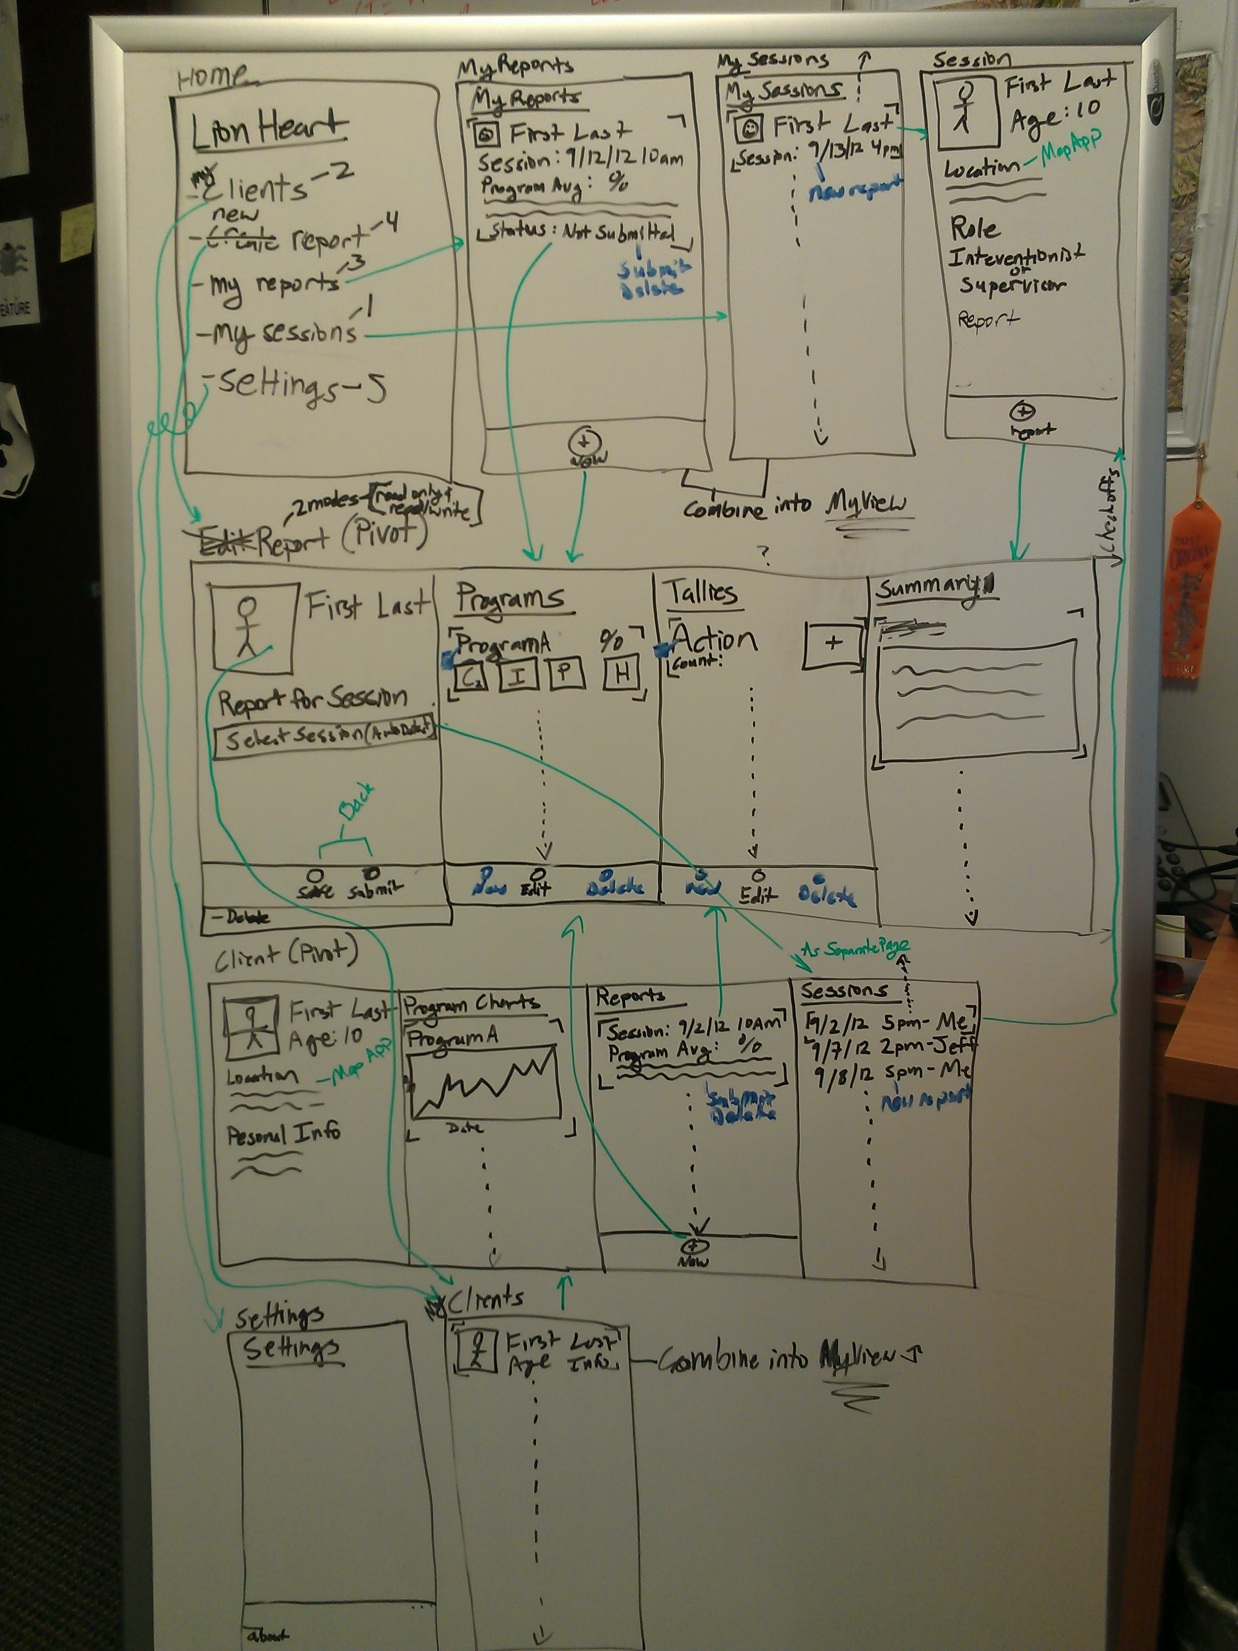 Home
Lion Heart
my
- Clients - 2
new
- report - 4
- my reports - 3
- My sessions - 1
- Settings - 5
My Reports
My Reports
First Last
Session: 9/12/12 10am
Program Avg: %
Status: Not Submitted
Submit
Delete
+
New
My Sessions
My Sessions
First Last
Session: 9/13/12 4pm
new report
Combine into MyView
Session
First Last
Age: 10
Location - Map App
Role
Interventionist
or
Supervisor
Report
+
report
2 modes - read only +
read/write
Edit Report (Pivot)
First Last
Report for Session
Select Session (AutoDetect)
Back
Save Submit
- Delete
Programs
Program A %
C I P H
New Edit Delete
?
Tallies
Action +
Count:
New Edit Delete
Summary
Client (Pivot)
First Last
Age: 10
Location - Map App
Pesonal Info
Program Charts
Program A
Date
Reports
Session: 9/2/12 10Am
Program Avg: %
Submit
Delete
+
New
As Separate Page
Sessions
9/2/12 5pm - Me
9/7/12 2pm - Jeff
9/8/12 5pm - Me
new report
Settings
Settings
about
Clients
First Last
Age Info
Combine into MyView
EATURE
MOST